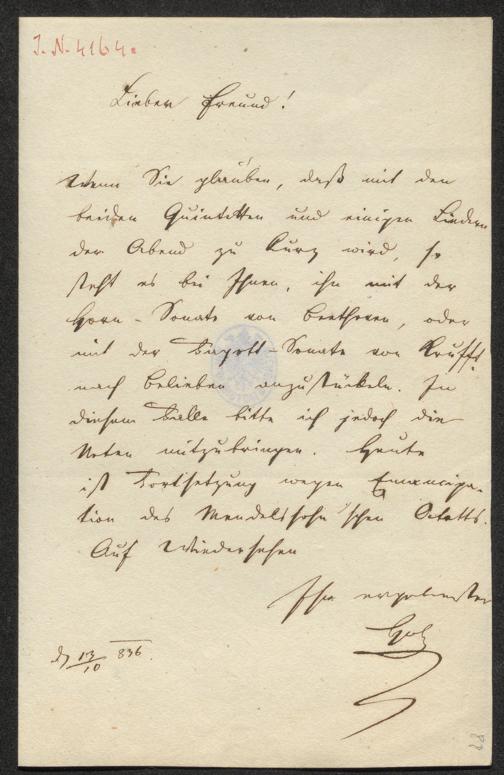 I.N. 4164.
Lieber Freund!
Wenn Sie glauben, daß mit den
beiden Quintetten und einigen Liedern
der Abend zu kurz wird, so
steht es bei Ihnen, ihn mit der
Horn-Sonate von Beethoven, oder
mit der Fagott-Sonate von Krufft
nach Belieben anzustückeln. In
diesem Falle bitte ich jedoch die
Noten mitzubringen. Heute
ist Fortsetzung wegen Emancipa-
tion des Mendelssohn'schen Octetts.
Auf Wiedersehen
Ihr ergebenster
Holz
13/10 836.